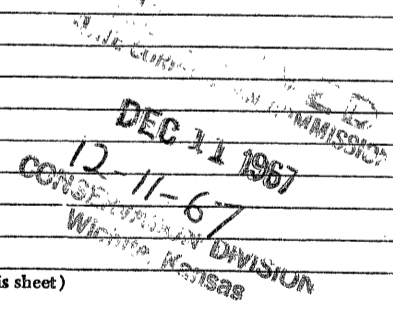 STATE CORPORATION COMMISSION
DEC 11 1967
12-11-67
CONSERVATION DIVISION
Wichita, Kansas
is sheet)